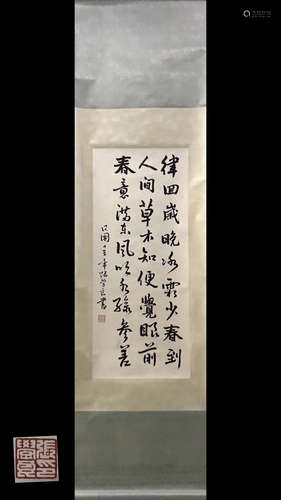 律回歲晚冰霜少春到
人間草木知便覺眼前
春意滿東風吹水綠參差
民國 年張學良書